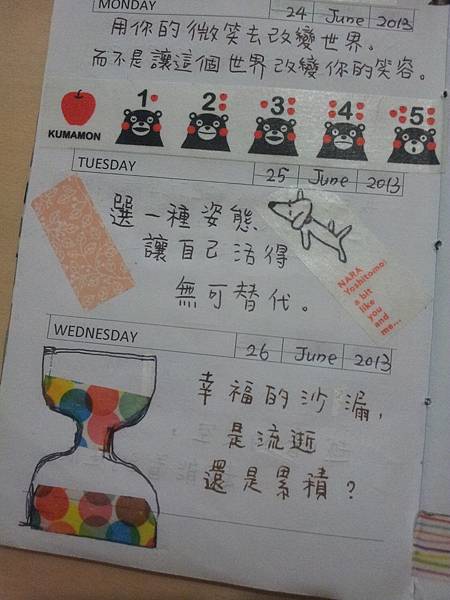 MONDAY 24 June 2013
用你的微笑去改變世界。
而不是讓這個世界改變你的笑容。
KUMAMON 1 2 3 4 5
TUESDAY 25 June 2013
選一種姿態
讓自己活得
無可替代。
NARA
Yoshitomo!
a bit
like
you
and
me...
WEDNESDAY 26 June 2013
幸福的沙漏,
是流逝
還是累積?